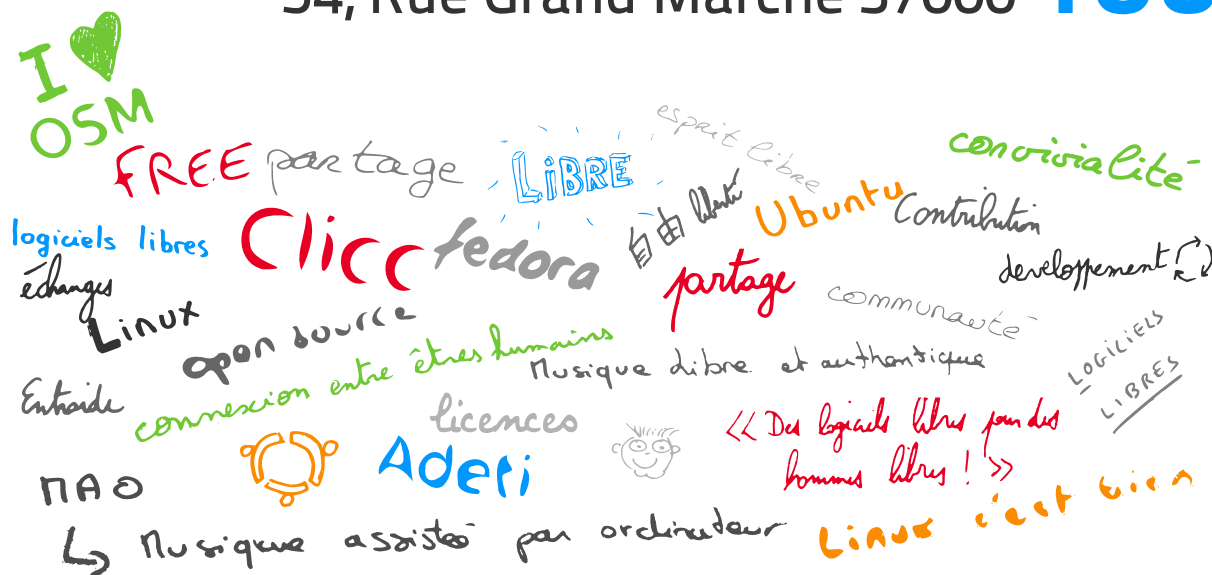 Rue Grand Marché 37000
I
OSM
FREE partage
LiBRE
esprit libre
convivialité
logiciels libres
Clicc
fedora
自由 liberté
Ubuntu
Contribution
échanges
Linux
partage
developpement
open source
communauté
connexion entre êtres humains
Musique Libre et authentique
LOGICIELS
LIBRES
Entraide
licences
<< Des logiciels libres pour des
hommes libres ! >>
Adeti
MAO
Musique assisté par ordinateur
Linux c'est bien